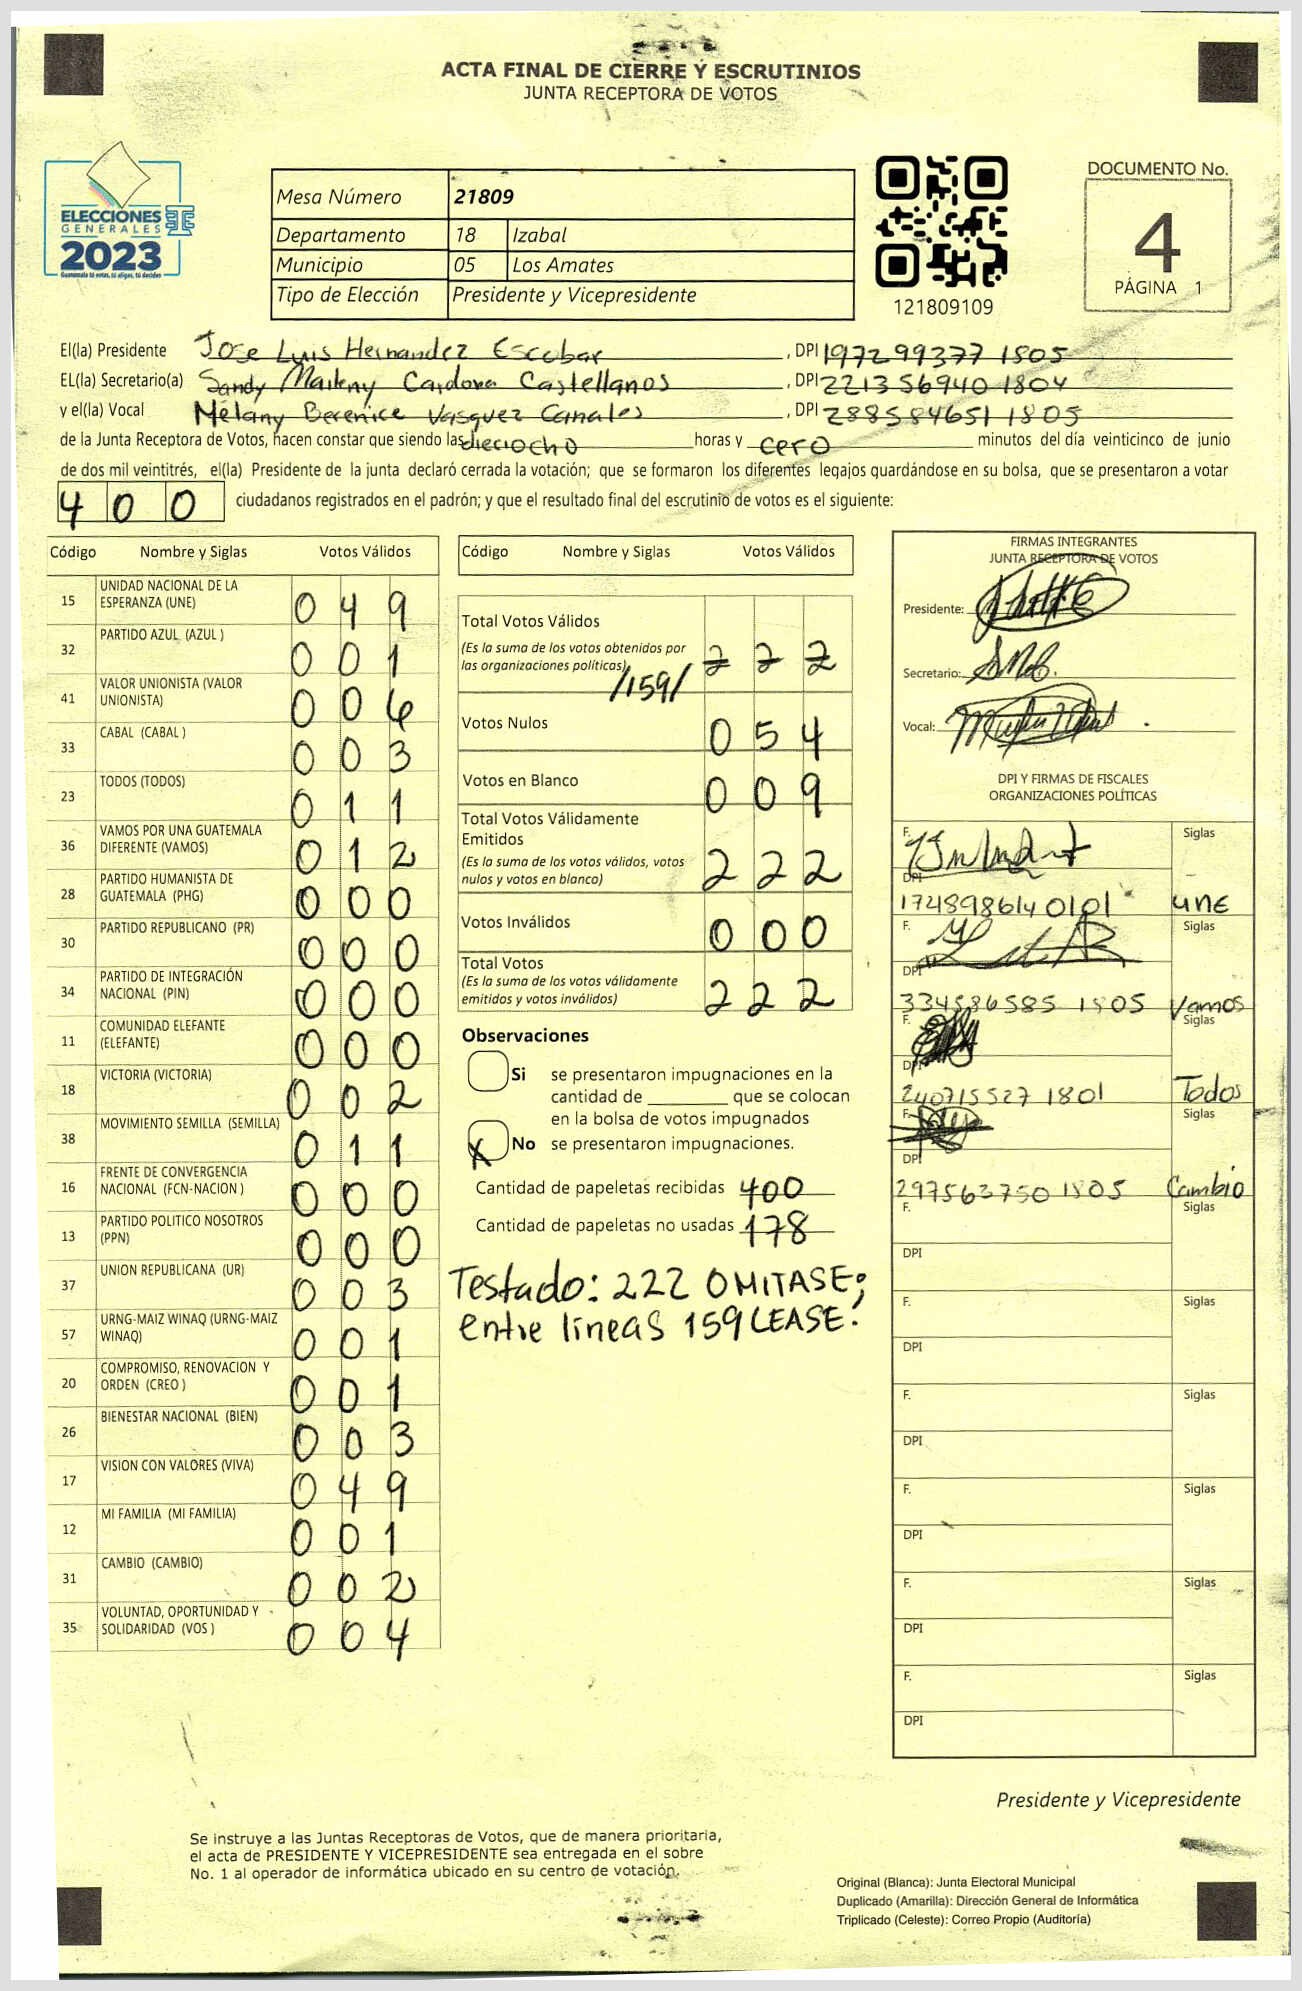 ACTA FINAL DE CIERRE Y ESCRUTINIOS
JUNTA RECEPTORA DE VOTOS
ELECCIONES
GENERALES
2023
Guatemala tú votas, tú eliges, tú decides
Mesa Número 21809
Departamento 18 Izabal
Municipio 05 Los Amates
Tipo de Elección Presidente y Vicepresidente
121809109
DOCUMENTO No.
4
PÁGINA 1
El(la) Presidente Jose Luis Hernandez Escobar, DPI 197299377 1805
EL(la) Secretario(a) Sandy Maileny Cardova Castellanos, DPI 221356940 1804
y el(la) Vocal Melany Berenice Vasquez Canales, DPI 288584651 1805
de la Junta Receptora de Votos, hacen constar que siendo las dieciocho horas y cero minutos del día veinticinco de junio
de dos mil veintitrés, el(la) Presidente de la junta declaró cerrada la votación; que se formaron los diferentes legajos quardándose en su bolsa, que se presentaron a votar
400 ciudadanos registrados en el padrón; y que el resultado final del escrutinio de votos es el siguiente:
Código Nombre y Siglas Votos Válidos
15 UNIDAD NACIONAL DE LA ESPERANZA (UNE) 049
32 PARTIDO AZUL (AZUL ) 001
41 VALOR UNIONISTA (VALOR UNIONISTA) 006
33 CABAL (CABAL ) 003
23 TODOS (TODOS) 011
36 VAMOS POR UNA GUATEMALA DIFERENTE (VAMOS) 012
28 PARTIDO HUMANISTA DE GUATEMALA (PHG) 000
30 PARTIDO REPUBLICANO (PR) 000
34 PARTIDO DE INTEGRACIÓN NACIONAL (PIN) 000
11 COMUNIDAD ELEFANTE (ELEFANTE) 000
18 VICTORIA (VICTORIA) 002
38 MOVIMIENTO SEMILLA (SEMILLA) 011
16 FRENTE DE CONVERGENCIA NACIONAL (FCN-NACION ) 000
13 PARTIDO POLITICO NOSOTROS (PPN) 000
37 UNION REPUBLICANA (UR) 003
57 URNG-MAIZ WINAQ (URNG-MAIZ WINAQ) 001
20 COMPROMISO, RENOVACION Y ORDEN (CREO ) 001
26 BIENESTAR NACIONAL (BIEN) 003
17 VISION CON VALORES (VIVA) 049
12 MI FAMILIA (MI FAMILIA) 001
31 CAMBIO (CAMBIO) 002
35 VOLUNTAD, OPORTUNIDAD Y SOLIDARIDAD (VOS ) 004
Código Nombre y Siglas Votos Válidos
Total Votos Válidos
(Es la suma de los votos obtenidos por
las organizaciones políticas) 222
/159/
Votos Nulos 054
Votos en Blanco 009
Total Votos Válidamente
Emitidos
(Es la suma de los votos válidos, votos
nulos y votos en blanco) 222
Votos Inválidos 000
Total Votos
(Es la suma de los votos válidamente
emitidos y votos inválidos) 222
Observaciones
Si se presentaron impugnaciones en la
cantidad de ________ que se colocan
en la bolsa de votos impugnados
X No se presentaron impugnaciones.
Cantidad de papeletas recibidas 400
Cantidad de papeletas no usadas 178
Testado: 222 OMITASE;
entre lineas 159 LEASE.
FIRMAS INTEGRANTES
JUNTA RECEPTORA DE VOTOS
Presidente:
Secretario:
Vocal:
DPI Y FIRMAS DE FISCALES
ORGANIZACIONES POLÍTICAS
F. Siglas
DPI
174898614 0101 UNE
F. Siglas
DPI
334586585 1805 Vamos
F. Siglas
DPI
240715527 1801 Todos
F. Siglas
DPI
297563750 1805 Cambio
F. Siglas
DPI
F. Siglas
DPI
F. Siglas
DPI
F. Siglas
DPI
F. Siglas
DPI
F. Siglas
DPI
Presidente y Vicepresidente
Se instruye a las Juntas Receptoras de Votos, que de manera prioritaria,
el acta de PRESIDENTE Y VICEPRESIDENTE sea entregada en el sobre
No. 1 al operador de informática ubicado en su centro de votación.
Original (Blanca): Junta Electoral Municipal
Duplicado (Amarilla): Dirección General de Informática
Triplicado (Celeste): Correo Propio (Auditoría)